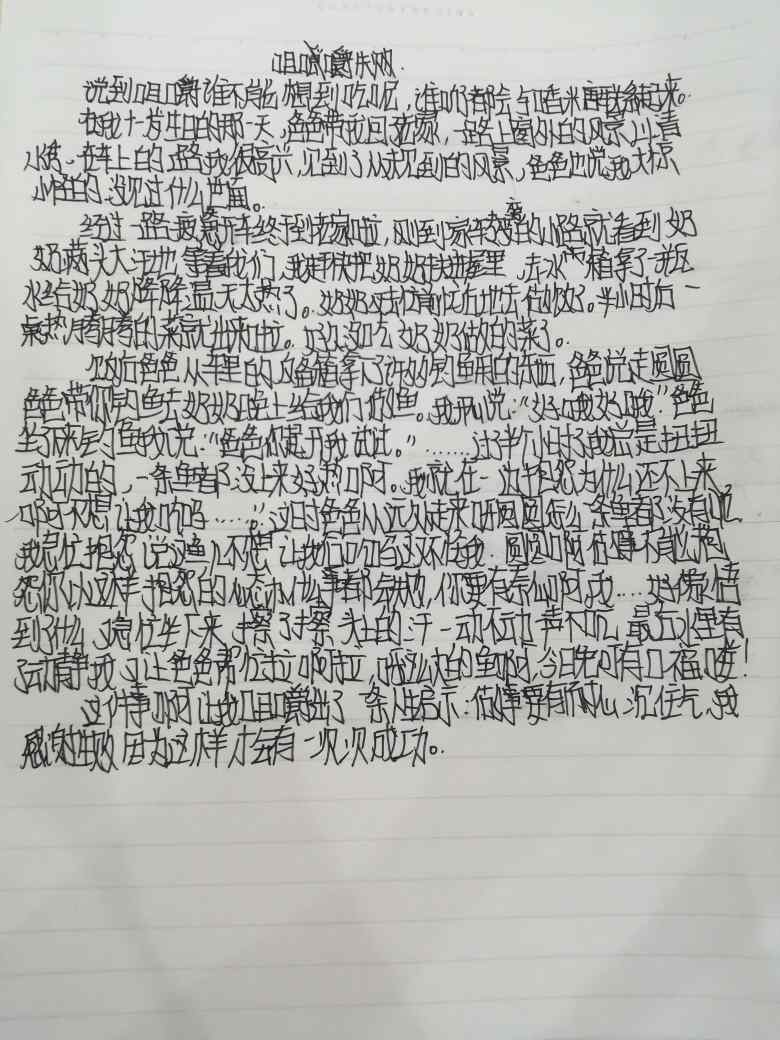 咀嚼失败.
说到咀嚼谁不能想到吃呢,谁吃都会
在我十岁生日的那一天,爸爸带我回老家,一路上窗外的风景,山清
水秀。在车上的一路我很高兴,见到了从未见到的风景,爸爸也说我大惊
小怪的,没见过什么世面。
经过一路疲惫开车终于到老家啦,刚到家旁边的小路就看到奶
奶满头大汗地等着我们,我赶快把奶奶扶进屋里,去冰箱拿了一瓶
水给奶奶降降温,天太热了。奶奶匆忙地去做饭了。半小时后一
桌热腾腾的菜就出来啦。好久没吃奶奶做的菜了。
吃饱后爸爸从车里的后备箱拿了许多钓鱼用的东西,爸爸说走圆圆
爸爸带你钓鱼去奶奶晚上给我们做鱼。我开心说:“好哦好哦”爸爸
坐下来钓鱼我说:“爸爸你起开我试试。”……过了半个小时了我总是扭扭
动动的,一条鱼都没上来好热啊。我就在一边抱怨为什么还不上来
啊不想让我吃吗……”。这时爸爸从远处走来呀圆圆怎么一条鱼都没有呢
我急忙抱怨说这鱼儿不想让我们吃啦这不怪我。圆圆啊做事不能抱
怨你以这样抱怨的心态办什么事都会失败,你要有信心啊,我……好像悟
到了什么,急忙坐下来擦了擦头上的汗一动不动一声不吭,最后水里有
了动静我马上让爸爸帮忙拉啊拉,哇这么大的鱼啊,今日先可有口福喽!
这件事啊让我咀嚼出了一条人生启示:做事要有耐心,沉住气,我
感谢失败因为这样才会有一次次成功。